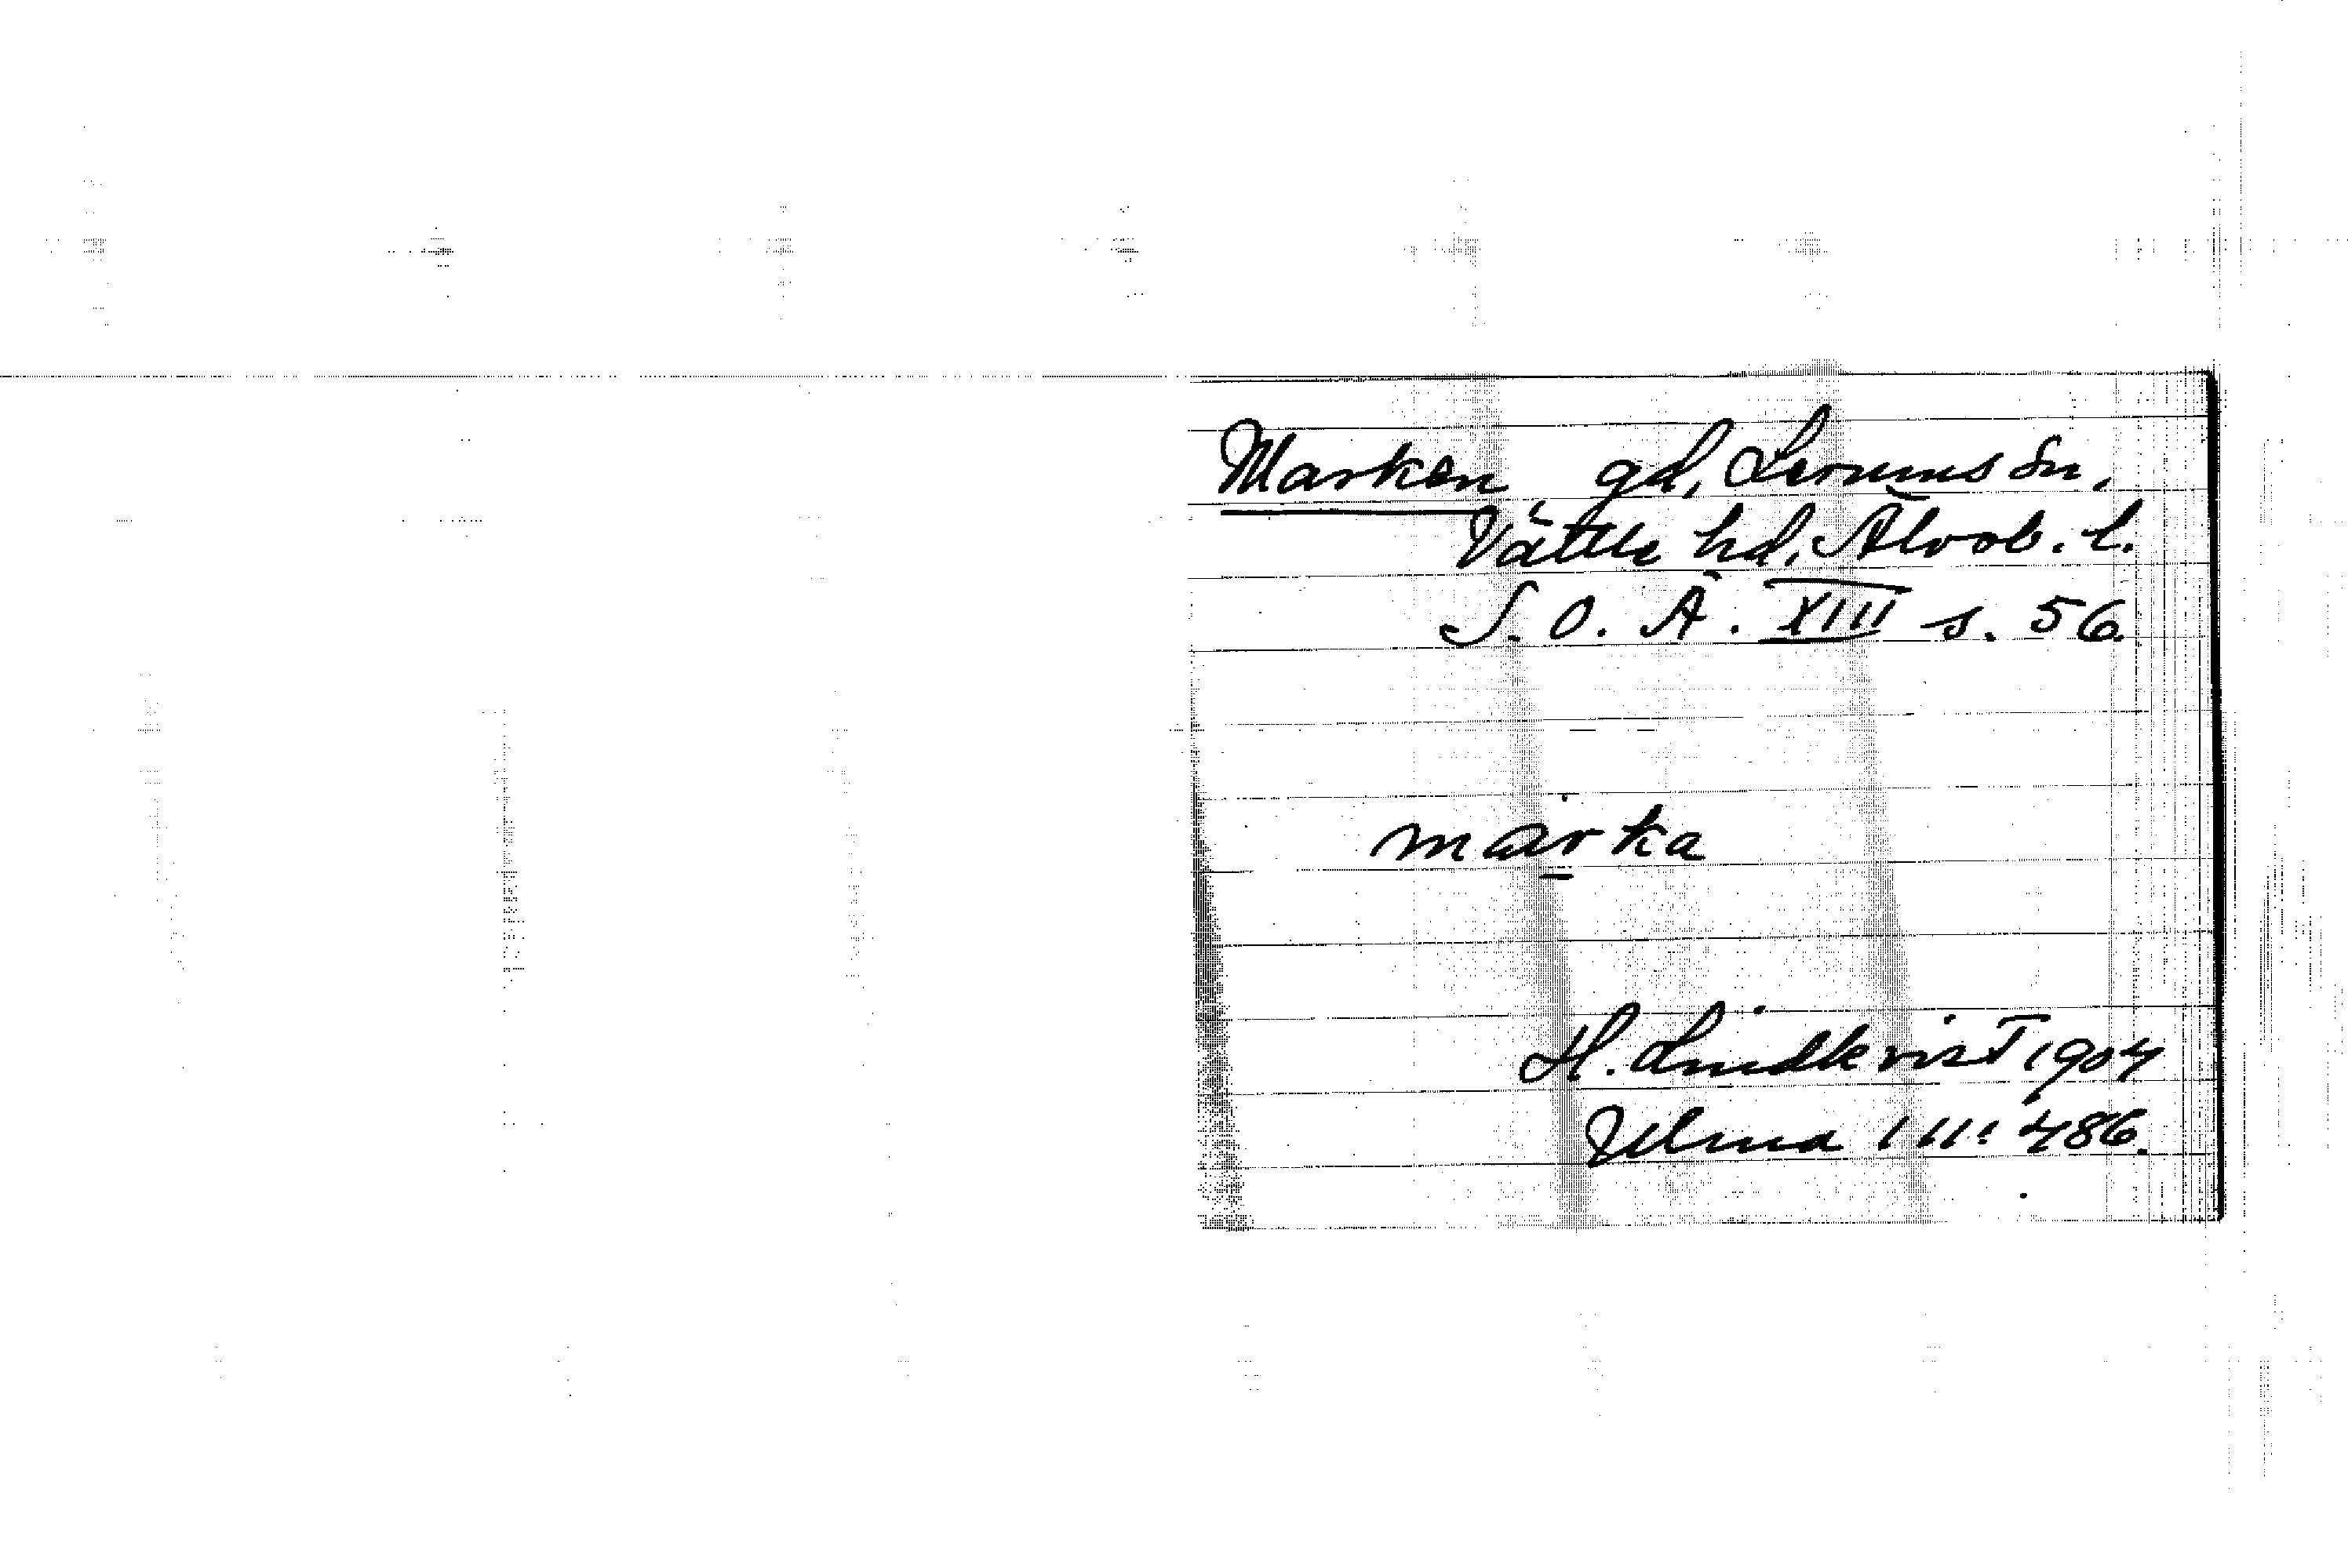 Marken gd, Lerums sn,
Vättle hd, Älvsb. l.
S. O. Ä. XIII s. 56.
marka
H. Lindkvist 1904
Ulma 111: 486.